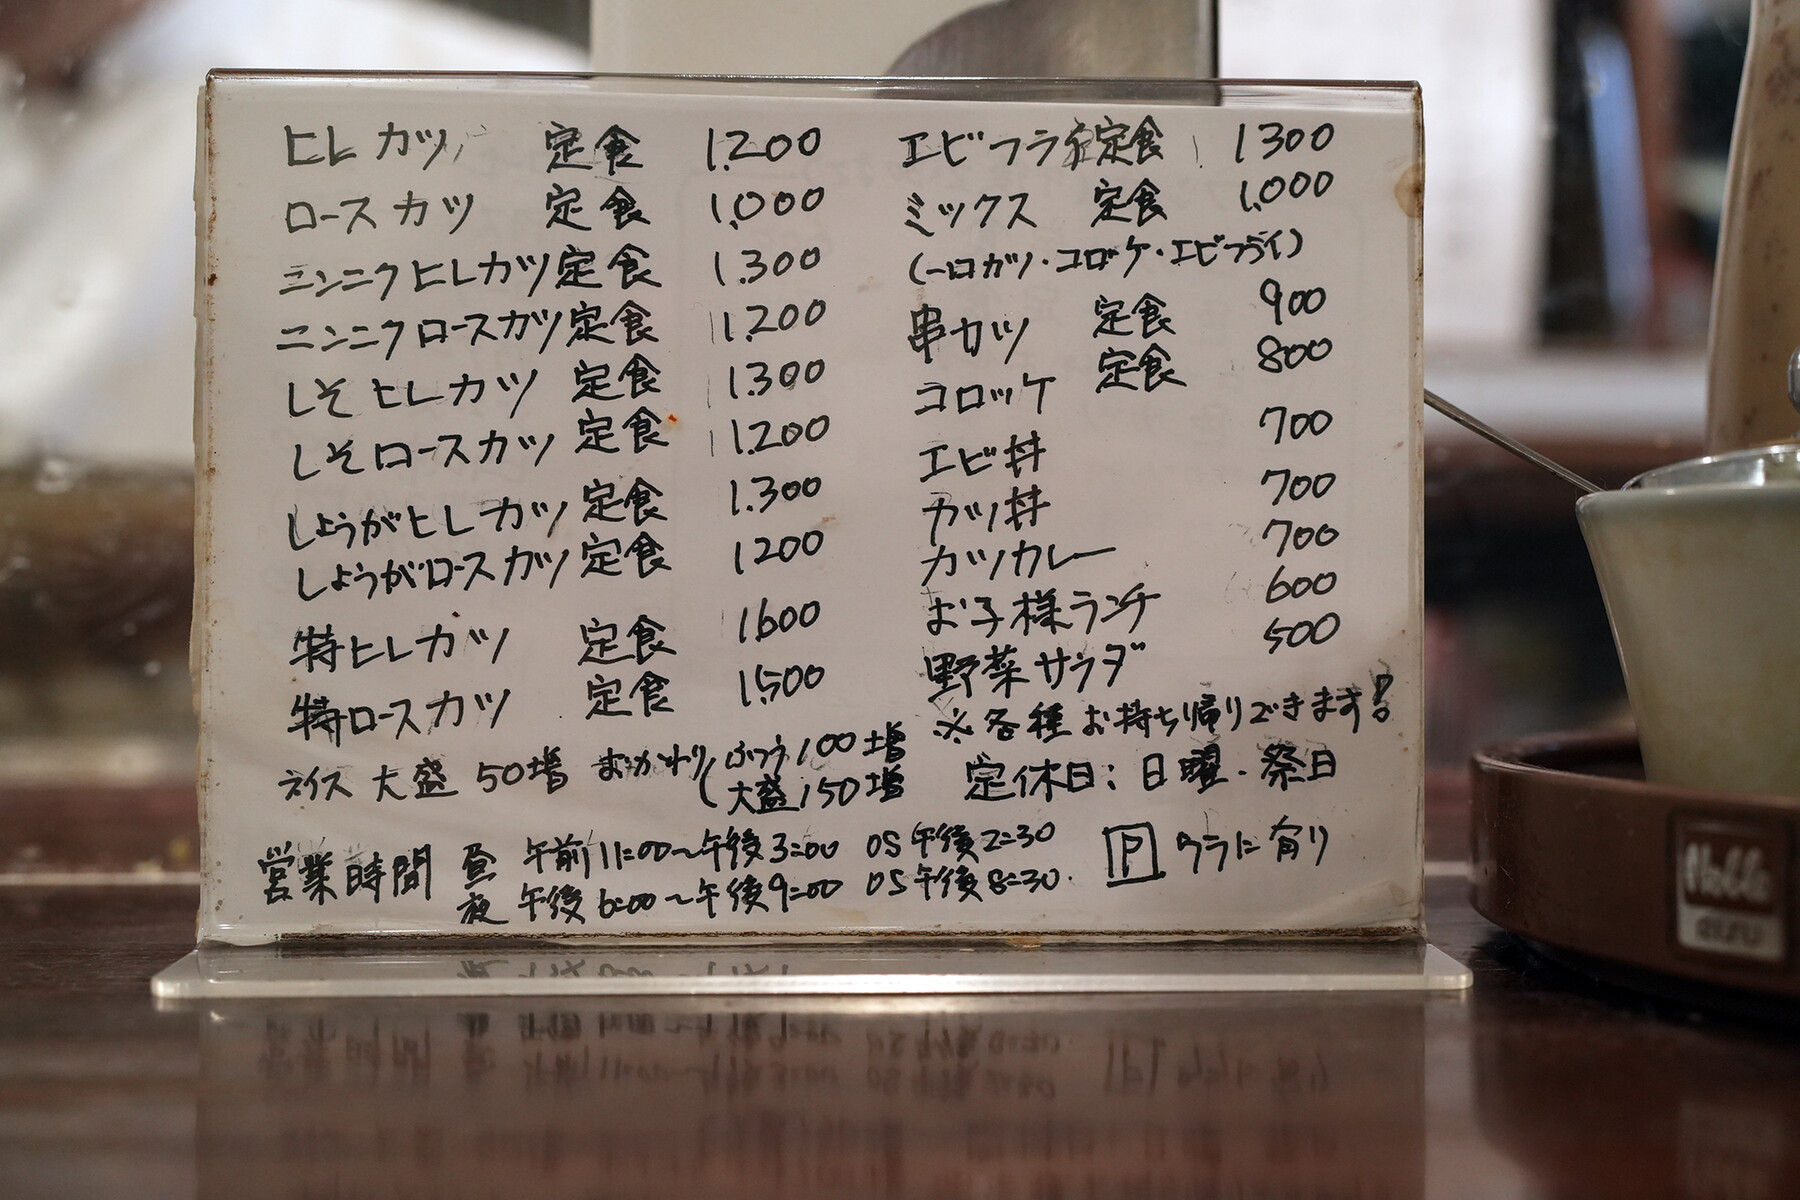 ヒレカツ 定食 1.200
ロースカツ 定食 1.000
ニンニクヒレカツ定食 1.300
ニンニクロースカツ定食 1.200
しそヒレカツ 定食 1.300
しそロースカツ 定食 1.200
しょうがヒレカツ 定食 1.300
しょうがロースカツ 定食 1200
特ヒレカツ 定食 1.600
特ロースカツ 定食 1.500
ライス 大盛 50増 おかわり(ふつう100増
大盛150増
エビフライ定食 1300
ミックス 定食 1.000
(一口カツ・コロッケ・エビフライ)
串カツ 定食 900
コロッケ 定食 800
エビ丼 700
カツ丼 700
カツカレー 700
お子様ランチ 600
野菜サラダ 500
※各種お持ち帰りできます!
定休日: 日曜・祭日
営業時間 昼 午前11:00~午後3:00 OS午後2:30
夜 午後6:00~午後9:00 OS午後8:30
P ウラに有り
Noble